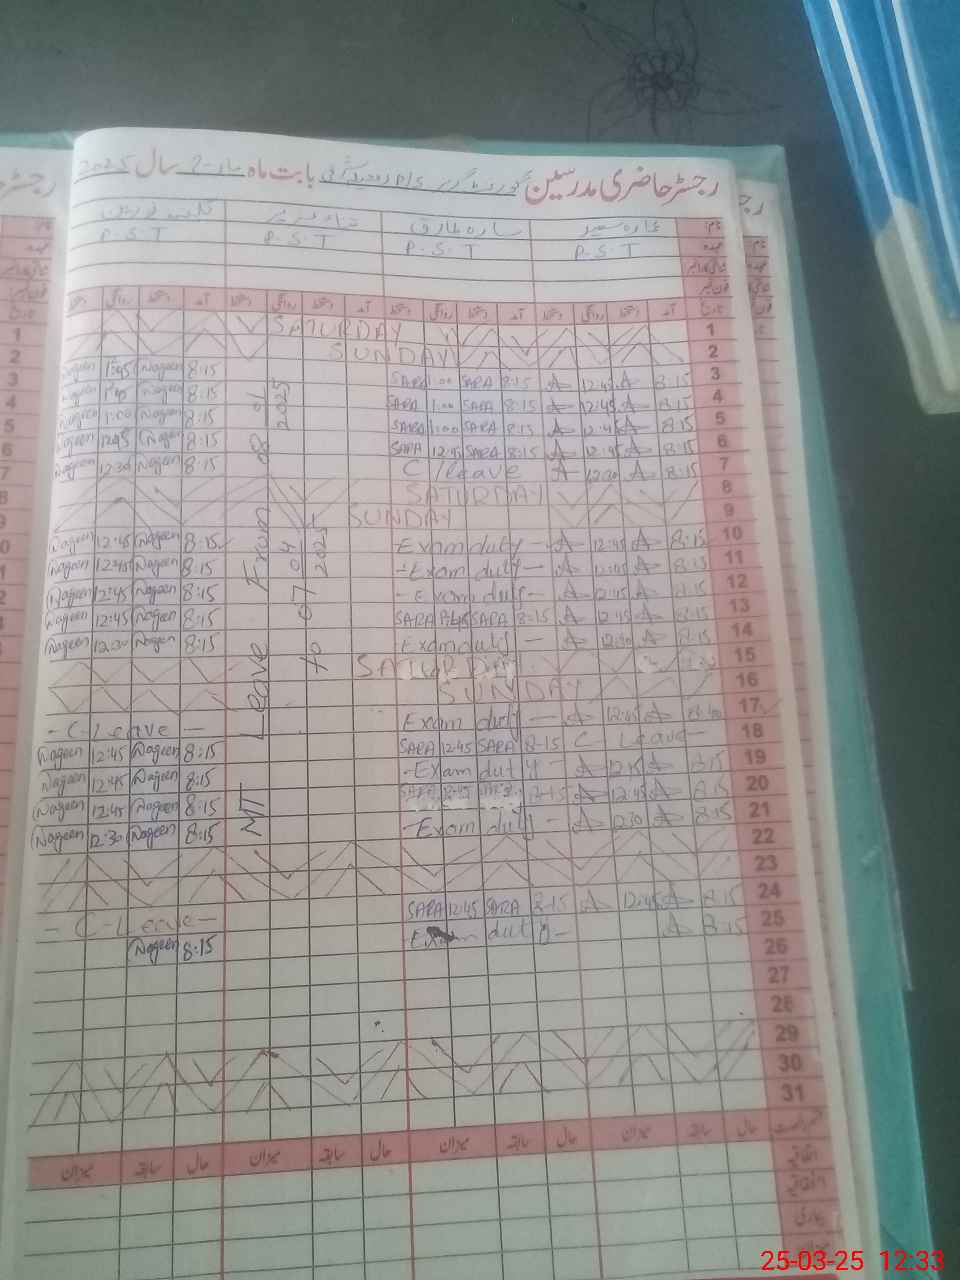 رجسٹر حاضری مدرسین P/S بابت ماہ مارچ سال 2025
نام: سارہ طارق
عہدہ P.S.T P.S.T P.S.T P.S.T
تاریخ آمد دستخط روانگی دستخط آمد دستخط روانگی دستخط آمد دستخط روانگی دستخط آمد دستخط روانگی دستخط
1 SATURDAY
2 SUNDAY
3 8:15 A 12:45 A 8:15 SARA 1:00 SARA 8:15 Nageen 1:45 Nageen
4 8:15 A 12:45 A 8:15 SARA 1:00 SARA 8:15 Nageen 1:45 Nageen
5 8:15 A 12:45 A 8:15 SARA 1:00 SARA 8:15 Nageen 1:00 Nageen
6 8:15 A 12:45 A 8:15 SARA 12:45 SARA 8:15 Nageen 12:45 Nageen
7 8:15 A 12:30 A C/leave 8:15 Nageen 12:30 Nageen
8 SATURDAY
9 SUNDAY
10 8:15 A 12:45 A Exam duty - 8:15 Nageen 12:45 Nageen
11 8:15 A 12:45 A - Exam duty - 8:15 Nageen 12:45 Nageen
12 8:15 A 12:45 A - Exam duty - 8:15 Nageen 12:45 Nageen
13 8:15 A 12:45 A 8:15 SARA 12:45 SARA 8:15 Nageen 12:45 Nageen
14 8:15 A 12:30 A Exam duty - 8:15 Nageen 12:30 Nageen
15 SATURDAY
16 SUNDAY
17 A 12:45 A Exam duty - - C-Leave -
18 C Leave - 8:15 SARA 12:45 SARA 8:15 Nageen 12:45 Nageen
19 8:15 A 12:45 A - Exam duty - 8:15 Nageen 12:45 Nageen
20 8:15 A 12:45 A 8:15 12:45 SARA 8:15 Nageen 12:45 Nageen
21 8:15 A 12:30 A - Exam duty - 8:15 Nageen 12:30 Nageen
22
23
24 8:15 A 12:45 A 8:15 SARA 12:45 SARA - C-Leave -
25 8:15 A - Exam duty - 8:15 Nageen
26
27
28
29
30
31
MT Leave From 8 01 2025
to 07 04 2025
حال سابقہ میزان حال سابقہ میزان حال سابقہ میزان حال سابقہ میزان
اتفاقیہ
بیماری
میزان
25-03-25 12:33